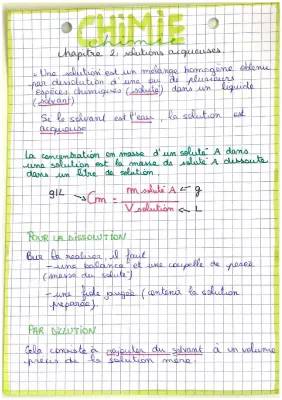 CHIMIE
chimie
chapitre 2: solutions aqueuses
- Une solution est un mélange homogène obtenu
par dissolution d'une ou de plusieurs
espèces chimiques (soluté) dans un liquide
(solvant)
Si le solvant est l'eau, la solution est
aqueuse
La concentration en masse d'un soluté A dans
une solution est la masse de soluté A dissoute
dans un litre de solution
g/L Cm = m soluté A ← g
V solution ← L
POUR LA DISSOLUTION
la réaliser, il faut
- une balance et une coupelle de pesée
(masse du soluté)
- une fiole jaugée (contenir la solution
préparée)
PAR DILUTION
Cela consiste à rajouter du solvant à un volume
précis de la solution mère.